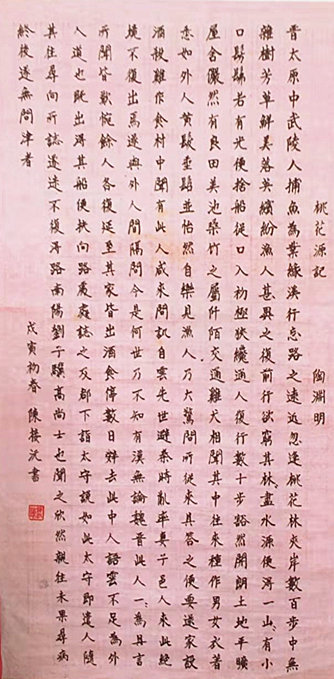 桃花源記 陶淵明
晉太原中武陵人捕魚為業緣溪行忘路之遠近忽逢桃花林夾岸數百步中無
雜樹芳草鮮美落英繽紛漁人甚異之復前行欲窮其林盡水源便得一山有小
口髣髴若有光便捨船從口入初極狹纔通人復行數十步豁然開朗土地平曠
屋舍儼然有良田美池桑竹之屬阡陌交通雞犬相聞其中往來種作男女衣著
悉如外人黃髮垂髫並怡然自樂見漁人乃大驚問所從來具答之便要還家設
酒殺雞作食村中聞有此人咸來問訊自雲先世避秦時亂率妻子邑人來此絕
境不復出焉遂與外人間隔問今是何世乃不知有漢無論魏晉此人一ゝ為具言
所聞皆歎惋餘人各復延至其家皆出酒食停數日辭去此中人語雲不足為外
人道也既出得其船便扶向路處處誌之及郡下詣太守說如此太守即遣人隨
其往尋向所誌遂迷不復得路南陽劉子驥高尚士也聞之欣然親往未果尋病
終後遂無問津者
戊寅初春 陳接沅書